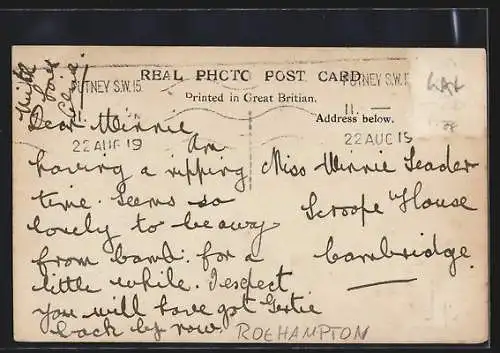 With
love
Elsie
PUTNEY S.W.15
22 AUG 19
REAL PHOTO POST CARD
Printed in Great Britian.
PUTNEY S.W.
11 —
22 AUG 19
Address below.
Dear Minnie
Am
having a ripping
time. Seems so
lovely to be away
from band. for a
little while. I expect
you will have got Gertie
back by now.
Miss Minnie Leader
Scroope House
Cambridge.
ROEHAMPTON